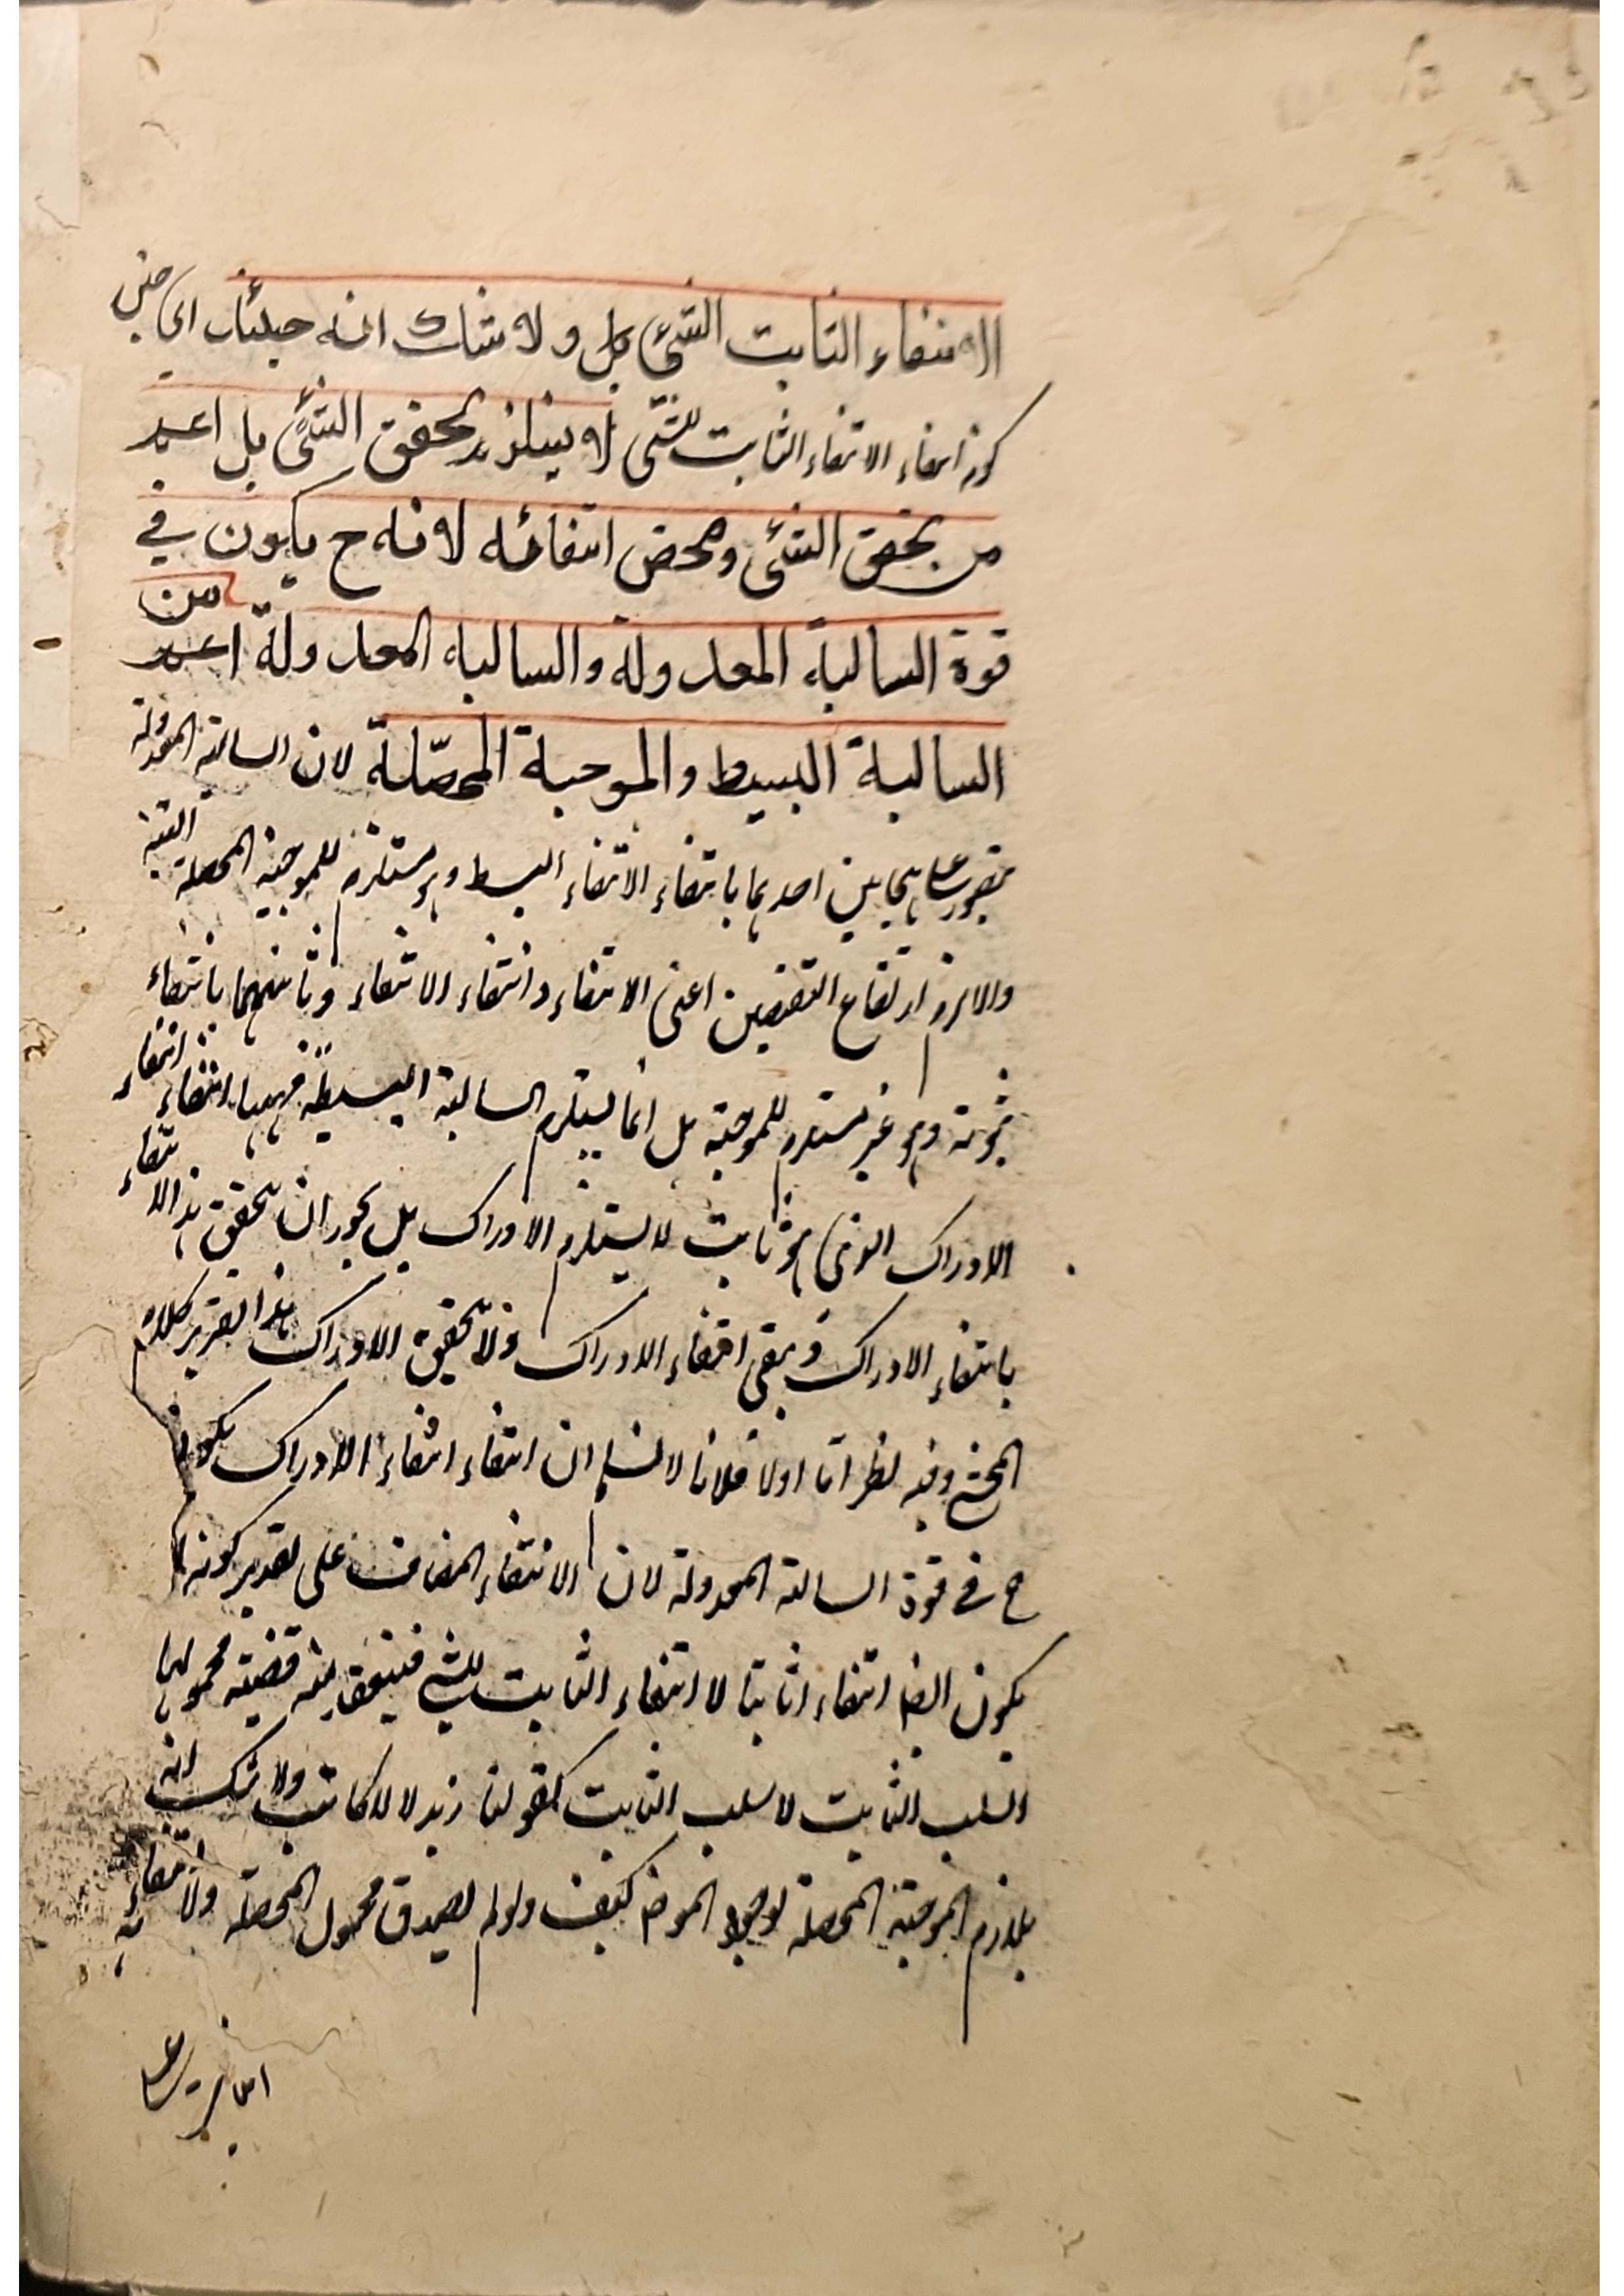 الانتفاء الثابت الشئ بل ولا شك انه حينئذ اى حين
كونه انتفاء الانتفاء الثابت للشئ لا يستلزم تحقق الشئ بل اعم
من تحقق الشئ ومحض انتفائه لانه ح يكون في
قوة السالبة المعدولة والسالبة المعدولة اعم من
السالبة البسيط والموجبة المحصّلة لان السالبة المعدولة
يتصور على نحوين احديهما بانتفاء الانتفاء البسيط وهو مستلزم للموجبة المحصلة البتة
والا لزم ارتفاع النقيضين اعنى الانتفاء وانتفاء الانتفاء وثانيهما بانتفاء
ثبوته وهو غير مستلزم للموجبة بل انما يستلزم السالبة البسيطة فههنا انتفاء انتفاء
الادراك الذى هو ثابت لا يستلزم الادراك بل يجوز ان يتحقق هذا الانتفاء
بانتفاء الادراك ويبقى انتفاء الادراك فلا تحقق الادراك هذا تقرير كلام
المحشى وفيه نظر اما اولا فلانا لا نسلم ان انتفاء انتفاء الادراك يكون
ح فى قوة السالبة المعدولة لان الانتفاء المضاف على تقدير كونه
يكون ايضا انتفاء ثابتا لا انتفاء الثابت للشئ فينعقد منه قضية محمولها
السلب الثابت لا سلب الثابت كقولنا زيد لا لا كاتب ولا شك انه
يلازم الموجبة المحصلة لوجود الموض كيف ولو لم يصدق محمول المحصلة ولا انتفائه